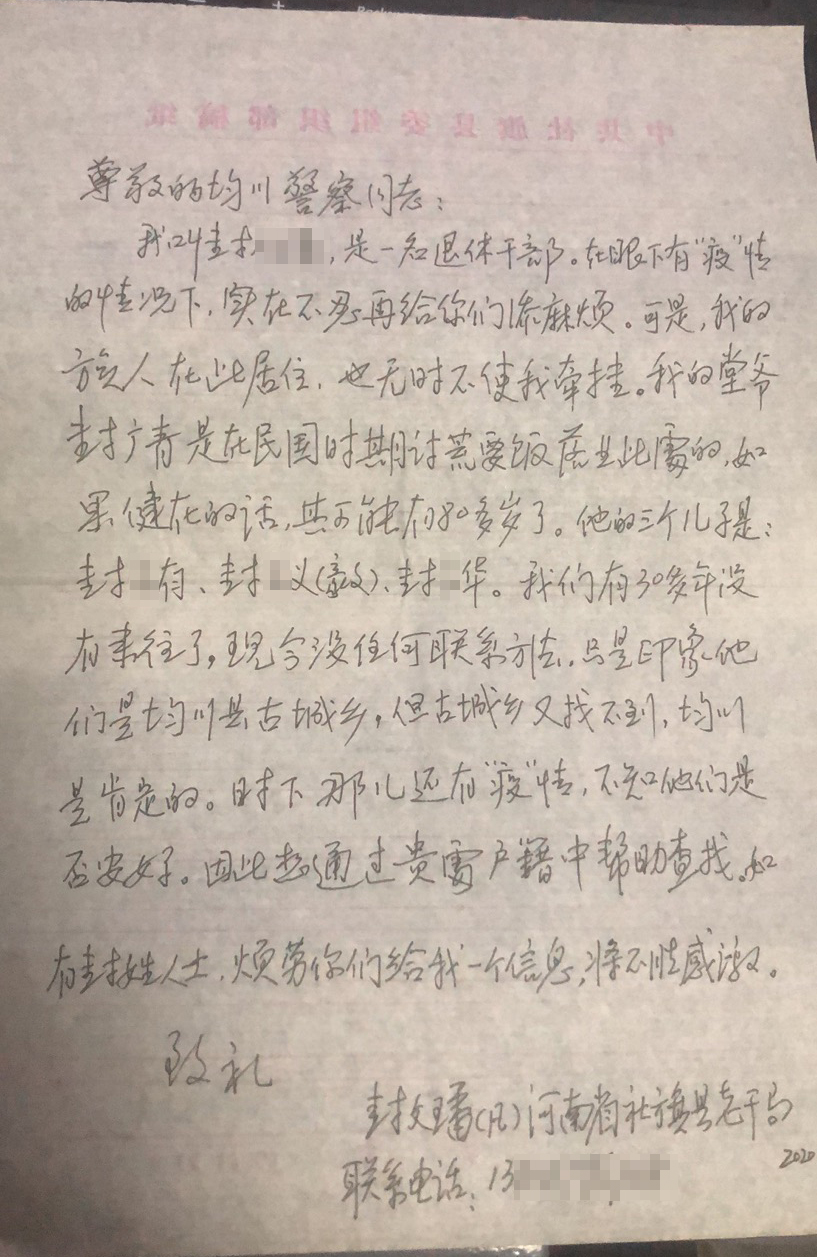 中共社旗县委组织部稿纸
尊敬的均川警察同志：
我叫封，是一名退休干部。在眼下有“疫”情
的情况下，实在不忍再给你们添麻烦。可是，我的
族人在此居住，也无时不使我牵挂。我的堂爷
封广青是在民国时期讨荒要饭落业此处的，如
果健在的话，共可能有80多岁了。他的三个儿子是：
封有、封义(毅)、封华。我们有30多年没
有来往了，现今没任何联系方法，只是印象他
们是均川县古城乡，但古城乡又找不到，均川
是肯定的。时下那儿还有“疫”情，不知他们是
否安好。因此想通过贵处户籍中帮助查找。如
有封姓人士，烦劳你们给我一个信息，将不胜感激。
致礼
封文璠(凡)河南省社旗县老干局
2020
联系电话：13